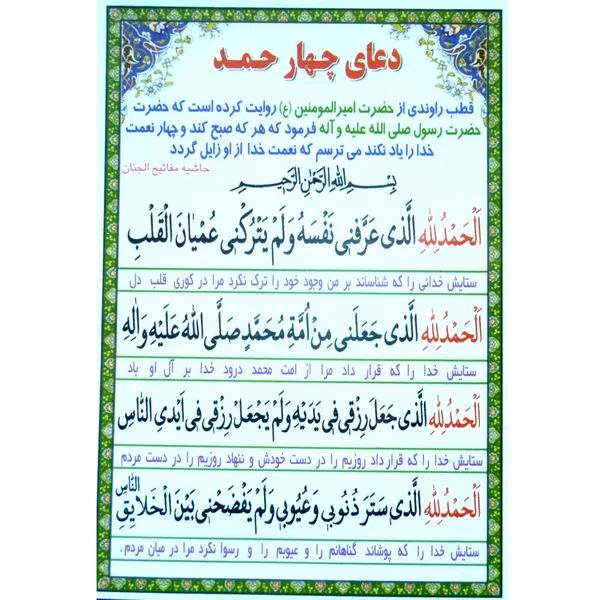 دعای چهار حمد
قطب راوندی از حضرت امیرالمومنین (ع) روایت کرده است که حضرت
حضرت رسول صلی الله علیه و آله فرمود که هر که صبح کند و چهار نعمت
خدا را یاد نکند می ترسم که نعمت خدا از او زایل گردد
حاشیه مفاتیح الجنان
بِسْمِ اللهِ الرَّحْمٰنِ الرَّحیمِ
اَلْحَمْدُلِلّٰهِ الَّذی عَرَّفَنی نَفْسَهُ وَلَمْ یَتْرُکْنی عُمْیانَ الْقَلْبِ
ستایش خدائی را که شناساند بر من وجود خود را ترک نکرد مرا در کوری قلب دل
اَلْحَمْدُلِلّٰهِ الَّذی جَعَلَنی مِنْ اُمَّةِ مُحَمَّدٍ صَلَّی اللهُ عَلَیْهِ وَالِهِ
ستایش خدا را که قرار داد مرا از امت محمد درود خدا بر آل او باد
اَلْحَمْدُلِلّٰهِ الَّذی جَعَلَ رِزْقی فی یَدَیْهِ وَلَمْ یَجْعَلْ رِزْقی فی اَیْدِی النّاسِ
ستایش خدا را که قرار داد روزیم را در دست خودش و ننهاد روزیم را در دست مردم
اَلْحَمْدُلِلّٰهِ الَّذی سَتَرَ ذُنُوبی وَعُیُوبی وَلَمْ یَفْضَحْنی بَیْنَ الْخَلایِقِ النّاسِ
ستایش خدا را که پوشاند گناهانم را و عیوبم را و رسوا نکرد مرا در میان مردم.